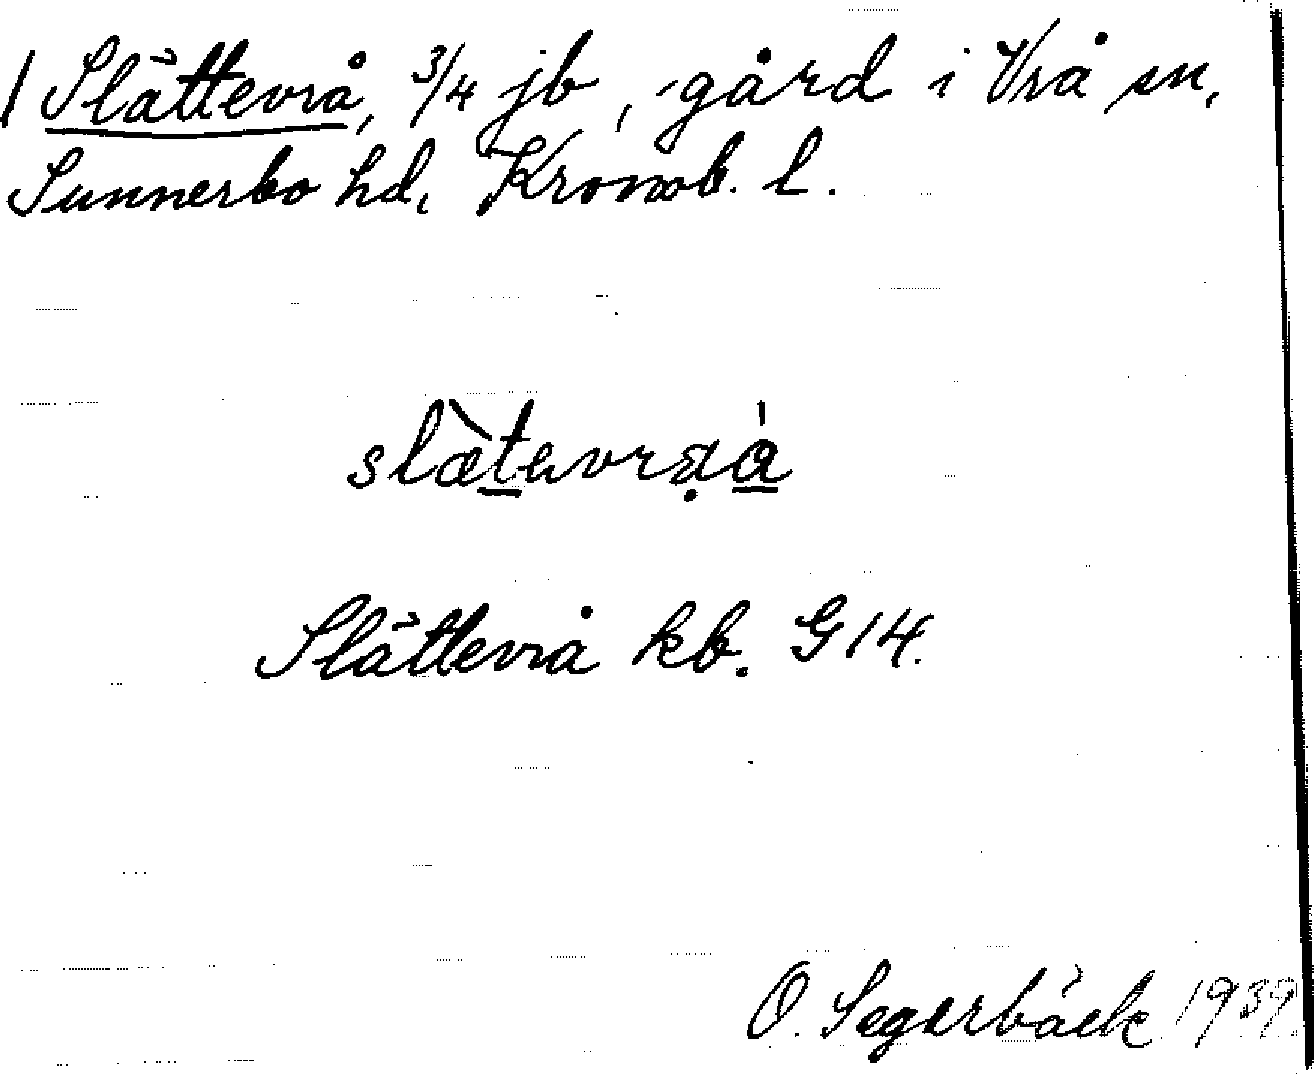 1 Slättevrå, 3/4 jb, gård i Vrå sn,
Sunnerbo hd, Kronob. l.
Slättevrå kb. G 14.
O. Segerbäck 1939